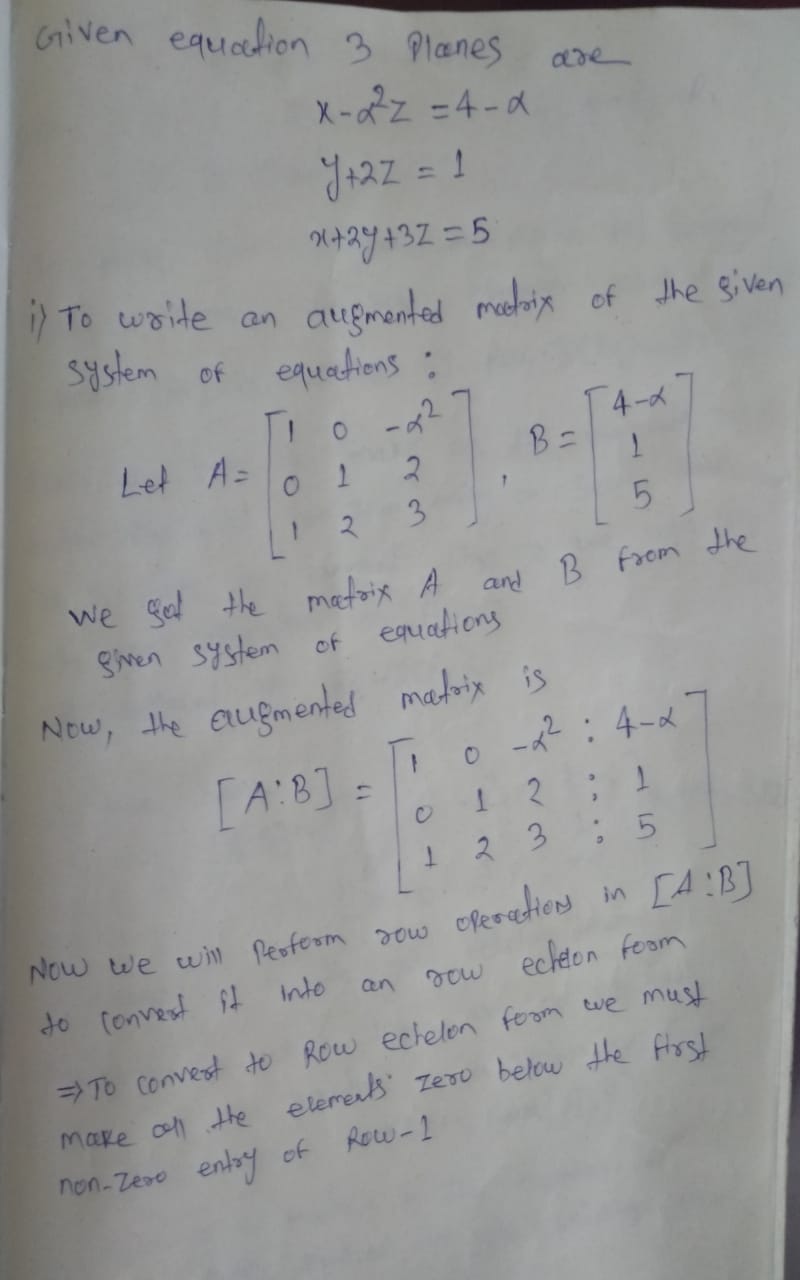 Given equation 3 Planes are
x-α²z = 4-α
y+2z = 1
x+2y+3z = 5
i) To write an augmented matrix of the given
system of equations :
Let A = [1 0 -α² , B = [4-α
0 1 2 1
1 2 3] 5]
We got the matrix A and B from the
given system of equations
Now, the augmented matrix is
[A:B] = [1 0 -α² : 4-α
0 1 2 : 1
1 2 3 : 5]
Now we will Perform row operations in [A:B]
to convert it into an row echelon form
⇒ To convert to Row echelon form we must
make all the elements zero below the first
non-zero entry of Row-1